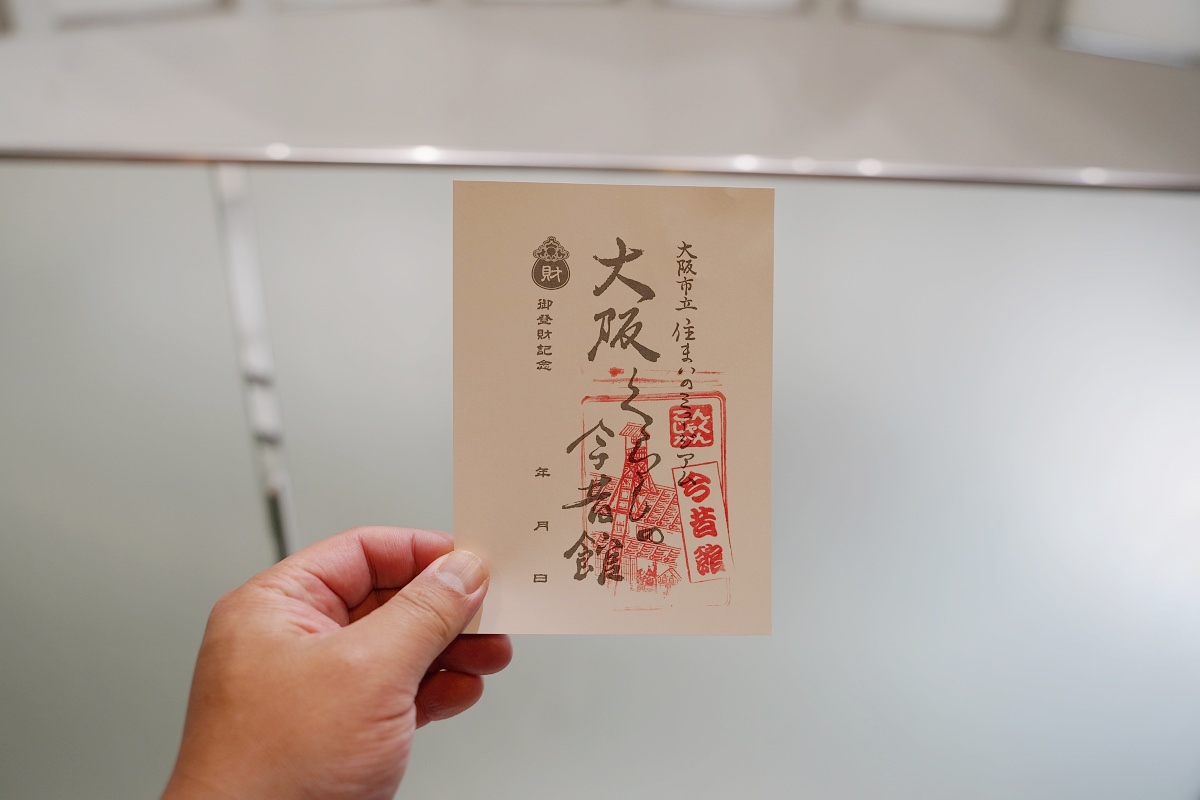 大阪市立 住まいのミュージアム
大阪くらしの
今昔館
財
御登財記念
年 月 日
こんじゃくかん
今昔館